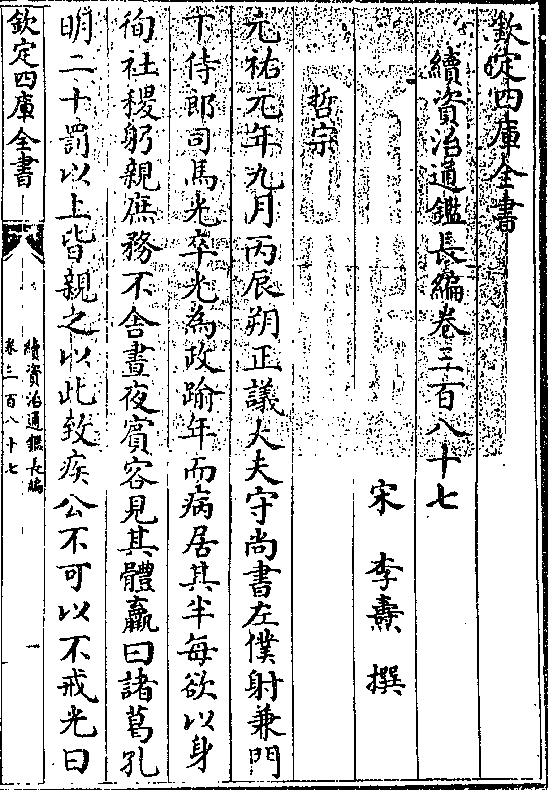 欽定四庫全書
續資治通鑑長編卷三百八十七
宋 李燾 撰
哲宗
元祐元年九月丙辰朔正議大夫守尚書左僕射兼門
下侍郎司馬光卒光為政踰年而病居其半每欲以身
徇社稷躬親庶務不舍晝夜賓客見其體羸曰諸葛孔
明二十罰以上皆親之以此致疾公不可以不戒光曰
欽定四庫全書
續資治通鑑長編
卷三百八十七
一